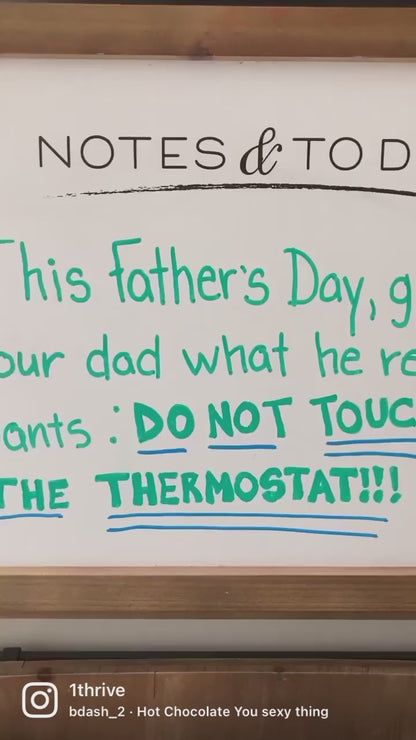 NOTES & TO D
This Father's Day, g
our dad what he re
ants: DO NOT TOUC
THE THERMOSTAT!!!
1thrive
bdash_2 · Hot Chocolate You sexy thing